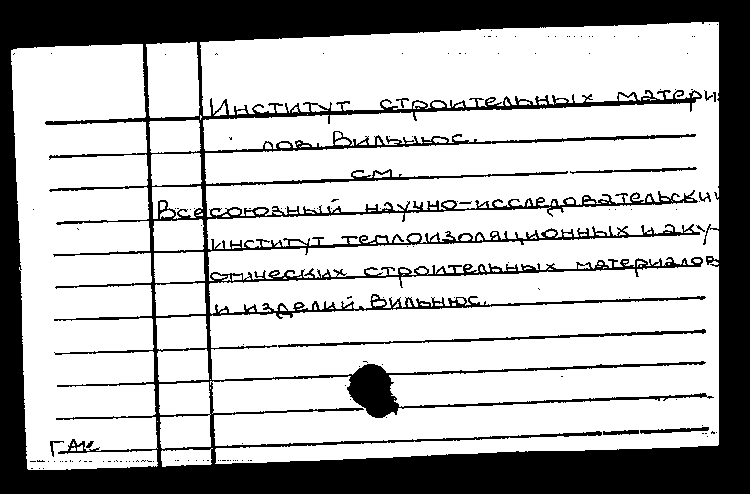 Институт строительных матери
лов. Вильнюс.
см.
Всесоюзный научно-исследовательский
институт теплоизоляционных и аку-
стических строительных материалов
и изделий. Вильнюс.
ГАК